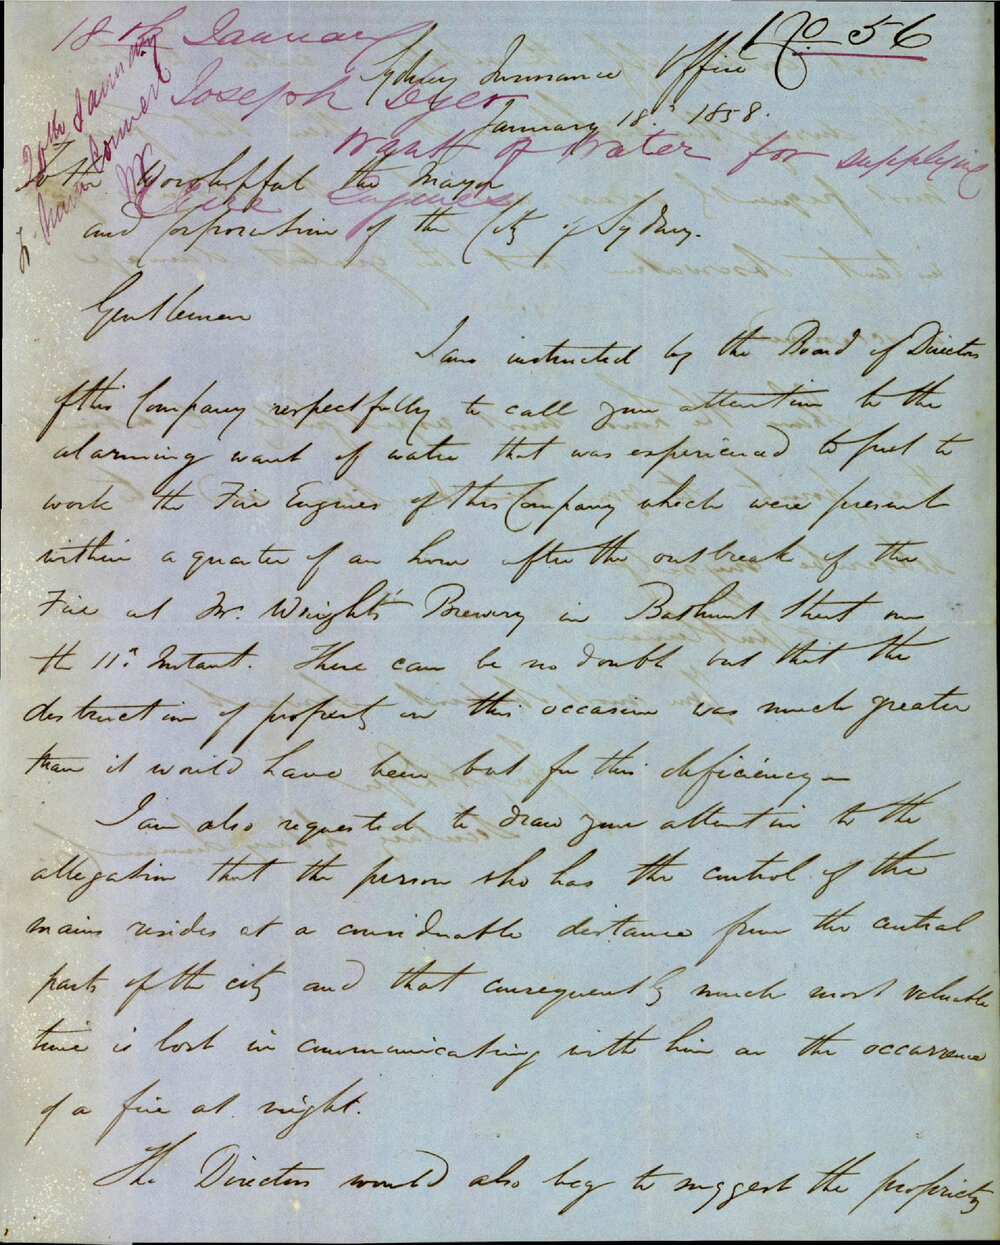 No 56
18th January
Joseph Dyer
Want of Water for supplying
Fire Engines
20th January
Sydney Insurance Office
January 18th 1858.
To the Worshipful the Mayor
and Corporation of the City of Sydney.
Gentlemen
I am instructed by the Board of Directors
of this Company respectfully to call your attention to the
alarming want of water that was experienced to fuel to
work the Fire Engines of this Company which were present
within a quarter of an hour after the outbreak of the
Fire at Mr. Wright's Brewery in Bathurst Street on
the 11th Instant. There can be no doubt but that the
destruction of property on this occasion was much greater
than it would have been but for this deficiency —
I am also requested to draw your attention to the
allegation that the person who has the control of the
mains resides at a considerable distance from the central
parts of the city and that consequently much most valuable
time is lost in communicating with him on the occurrence
of a fire at night.
The Directors would also beg to suggest the propriety